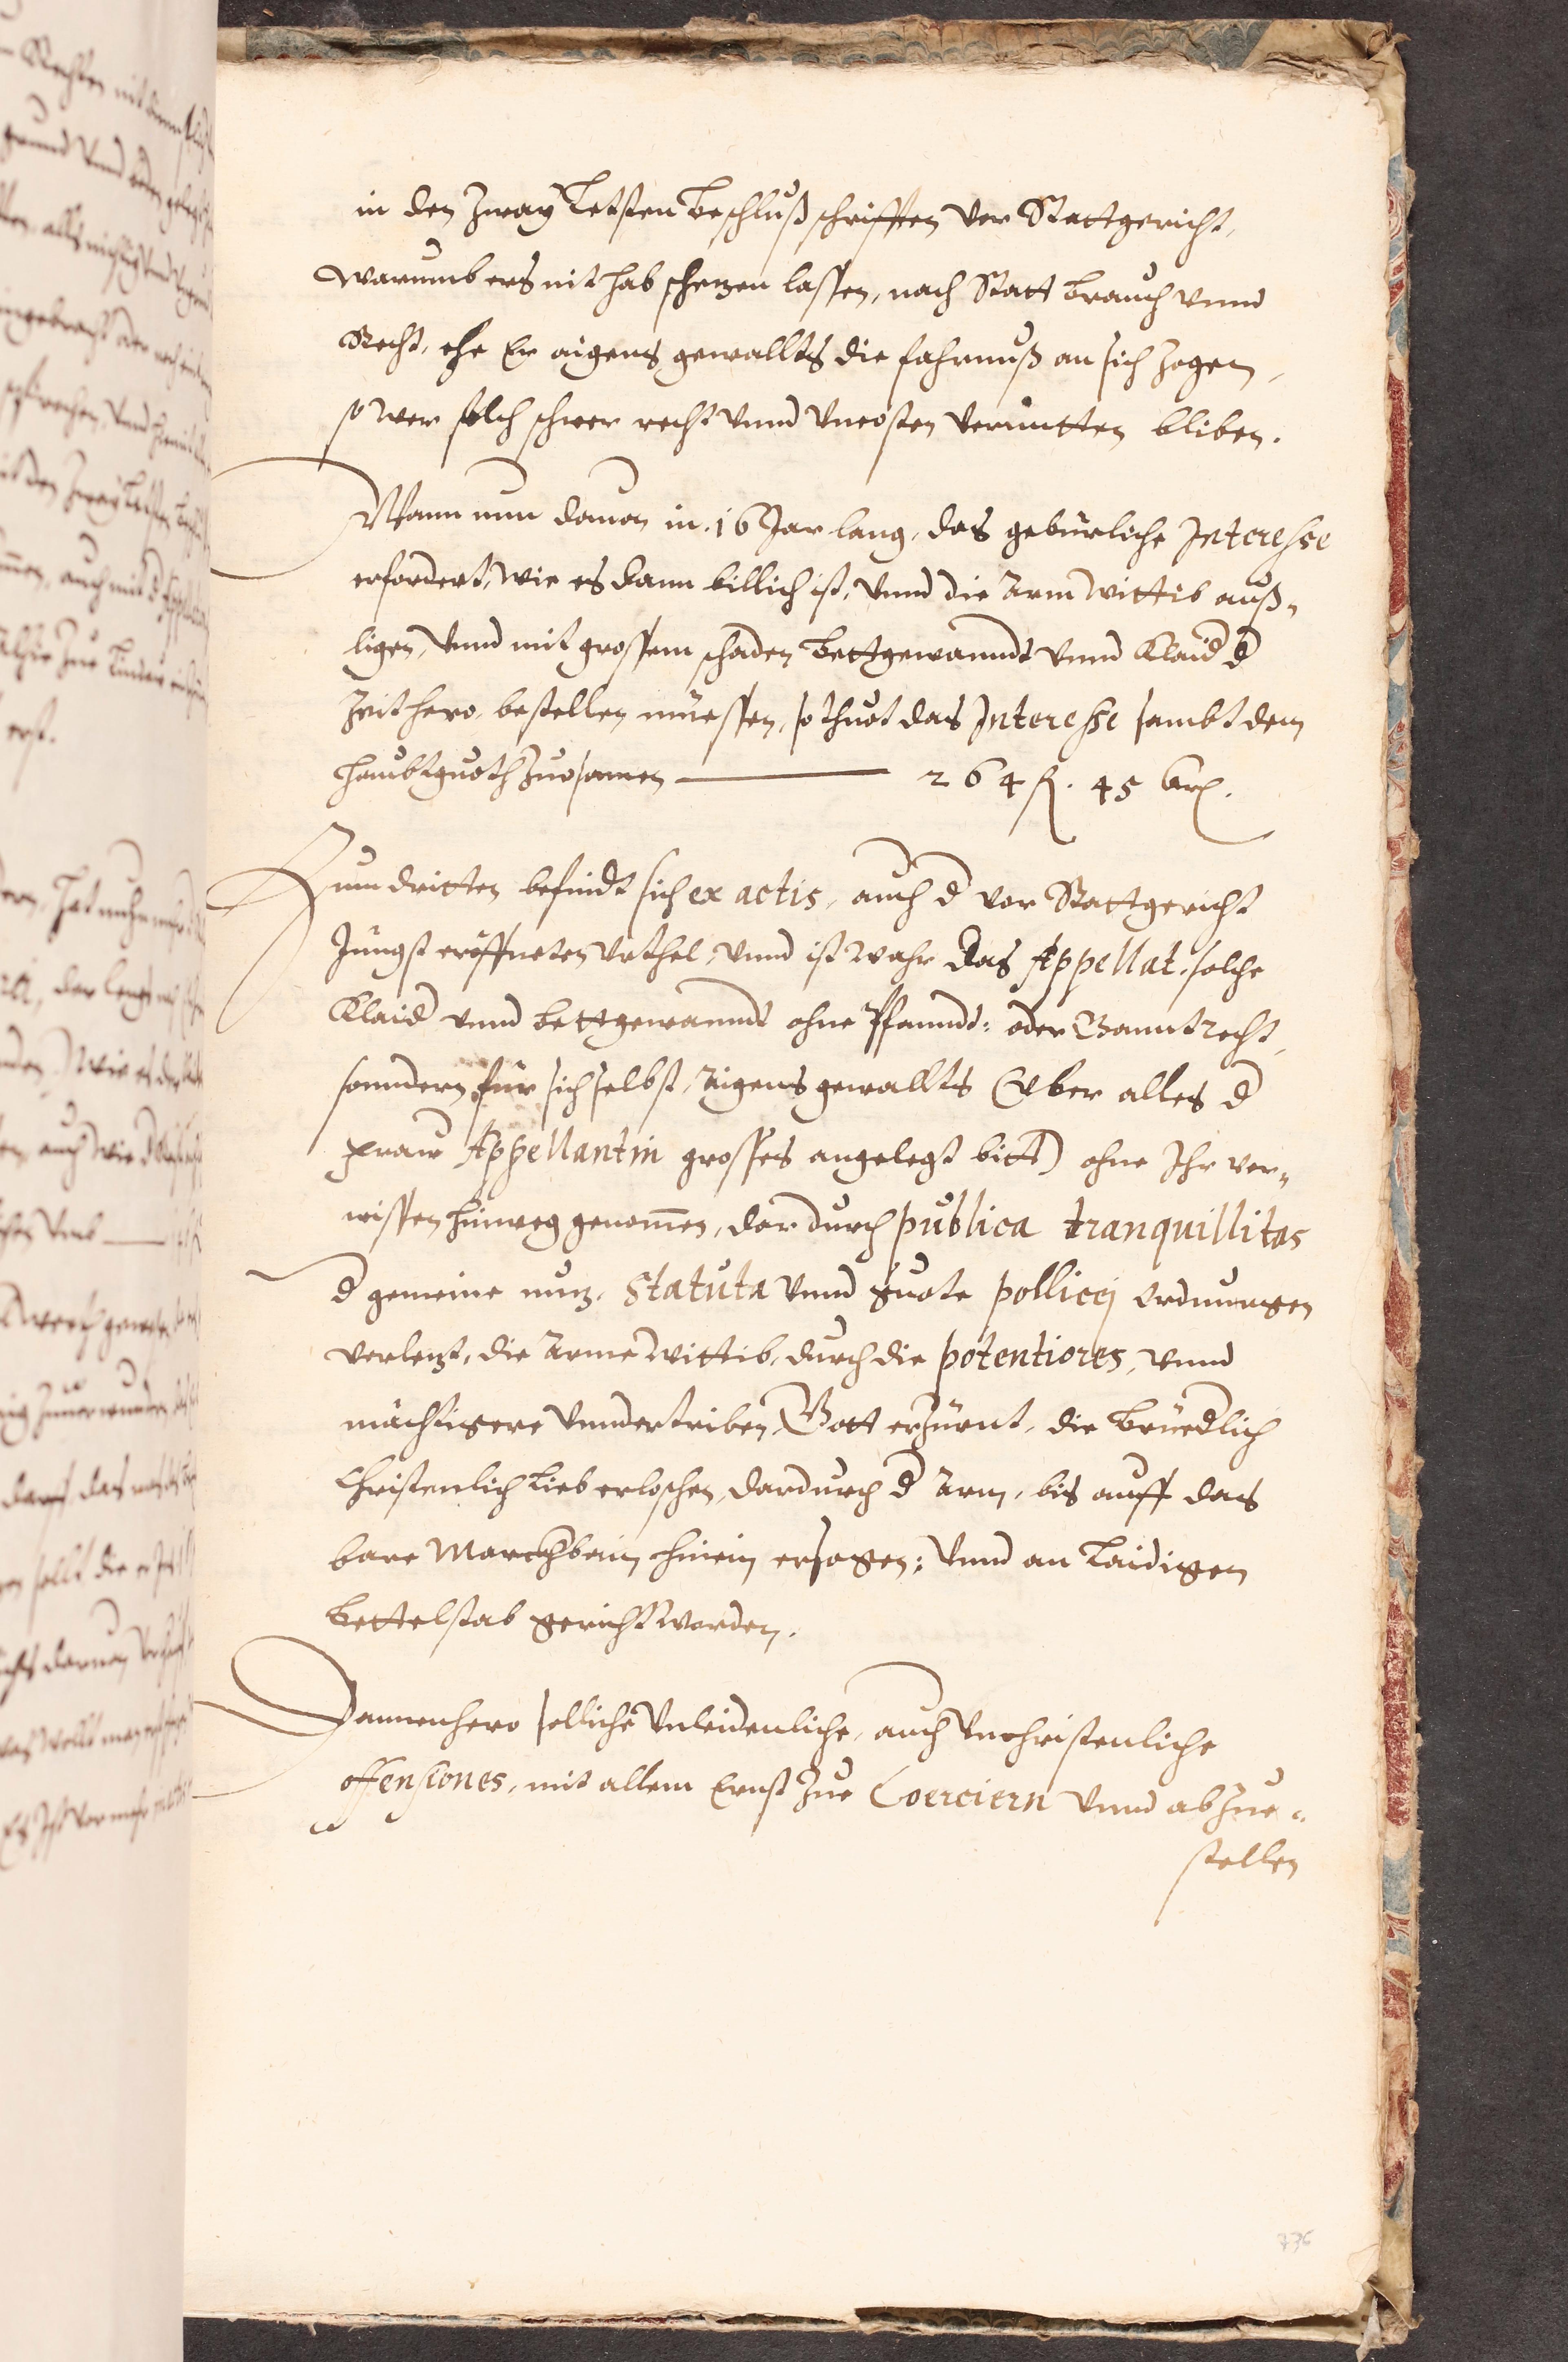 in den zway letsten beschluß schrifften vor Stattgericht,
warumb ers nit hab schezen lassen, nach Statt brauch vnnd
Recht, ehe Er aigens gewallts die fahrnuß an sich zogen,
so wer solch schwer recht vnnd vncosten vermitten bliben.
Wann nun dauon in .16 Jar lang, das gebürliche Interesse
erfordert, wie es dann billich ist, vnnd die Arm wittib auß-
ligen, vnnd mit grossem schaden bettgewanndt vnnd Klaid d
Zeit hero, bestellen müessen, so thuot das Interesse sambt dem
haubtguoth zuosamen ——— 264 fl. 45 krz.
Zum dritten befindt sich ex actis, auch d vor Stattgericht
Jungst eröffneten vrthel, vnnd ist wahr das Appellat. solche
Klaid vnnd bettgewanndt ohne Pfanndt: oder Ganntrecht,
sonndern für sich selbst, Aigens gewallts (Vber alles d
fraw Appellantin grosses angelegt bitt) ohne Ihr vor-
wissen hinweg genomen, dardurch publica tranquillitas
d gemeine nuz, statuta vnnd guote pollicej ordnungen
verlezt, die Arme wittib, durch die potentiores, vnnd
mächtigere vnndertriben, Gott erzürnt, die brüedlich
Christenlich Lieb erloschen, dardurch d Arm, bis auff das
bare Marchbein hinein ersogen: vnnd an laidigen
bettelstab gericht worden.
Dannenhero solliche vnleidenliche, auch vnchristenliche
offensiones, mit allem Ernst zue Coerciern vnnd abzue-
stellen
736